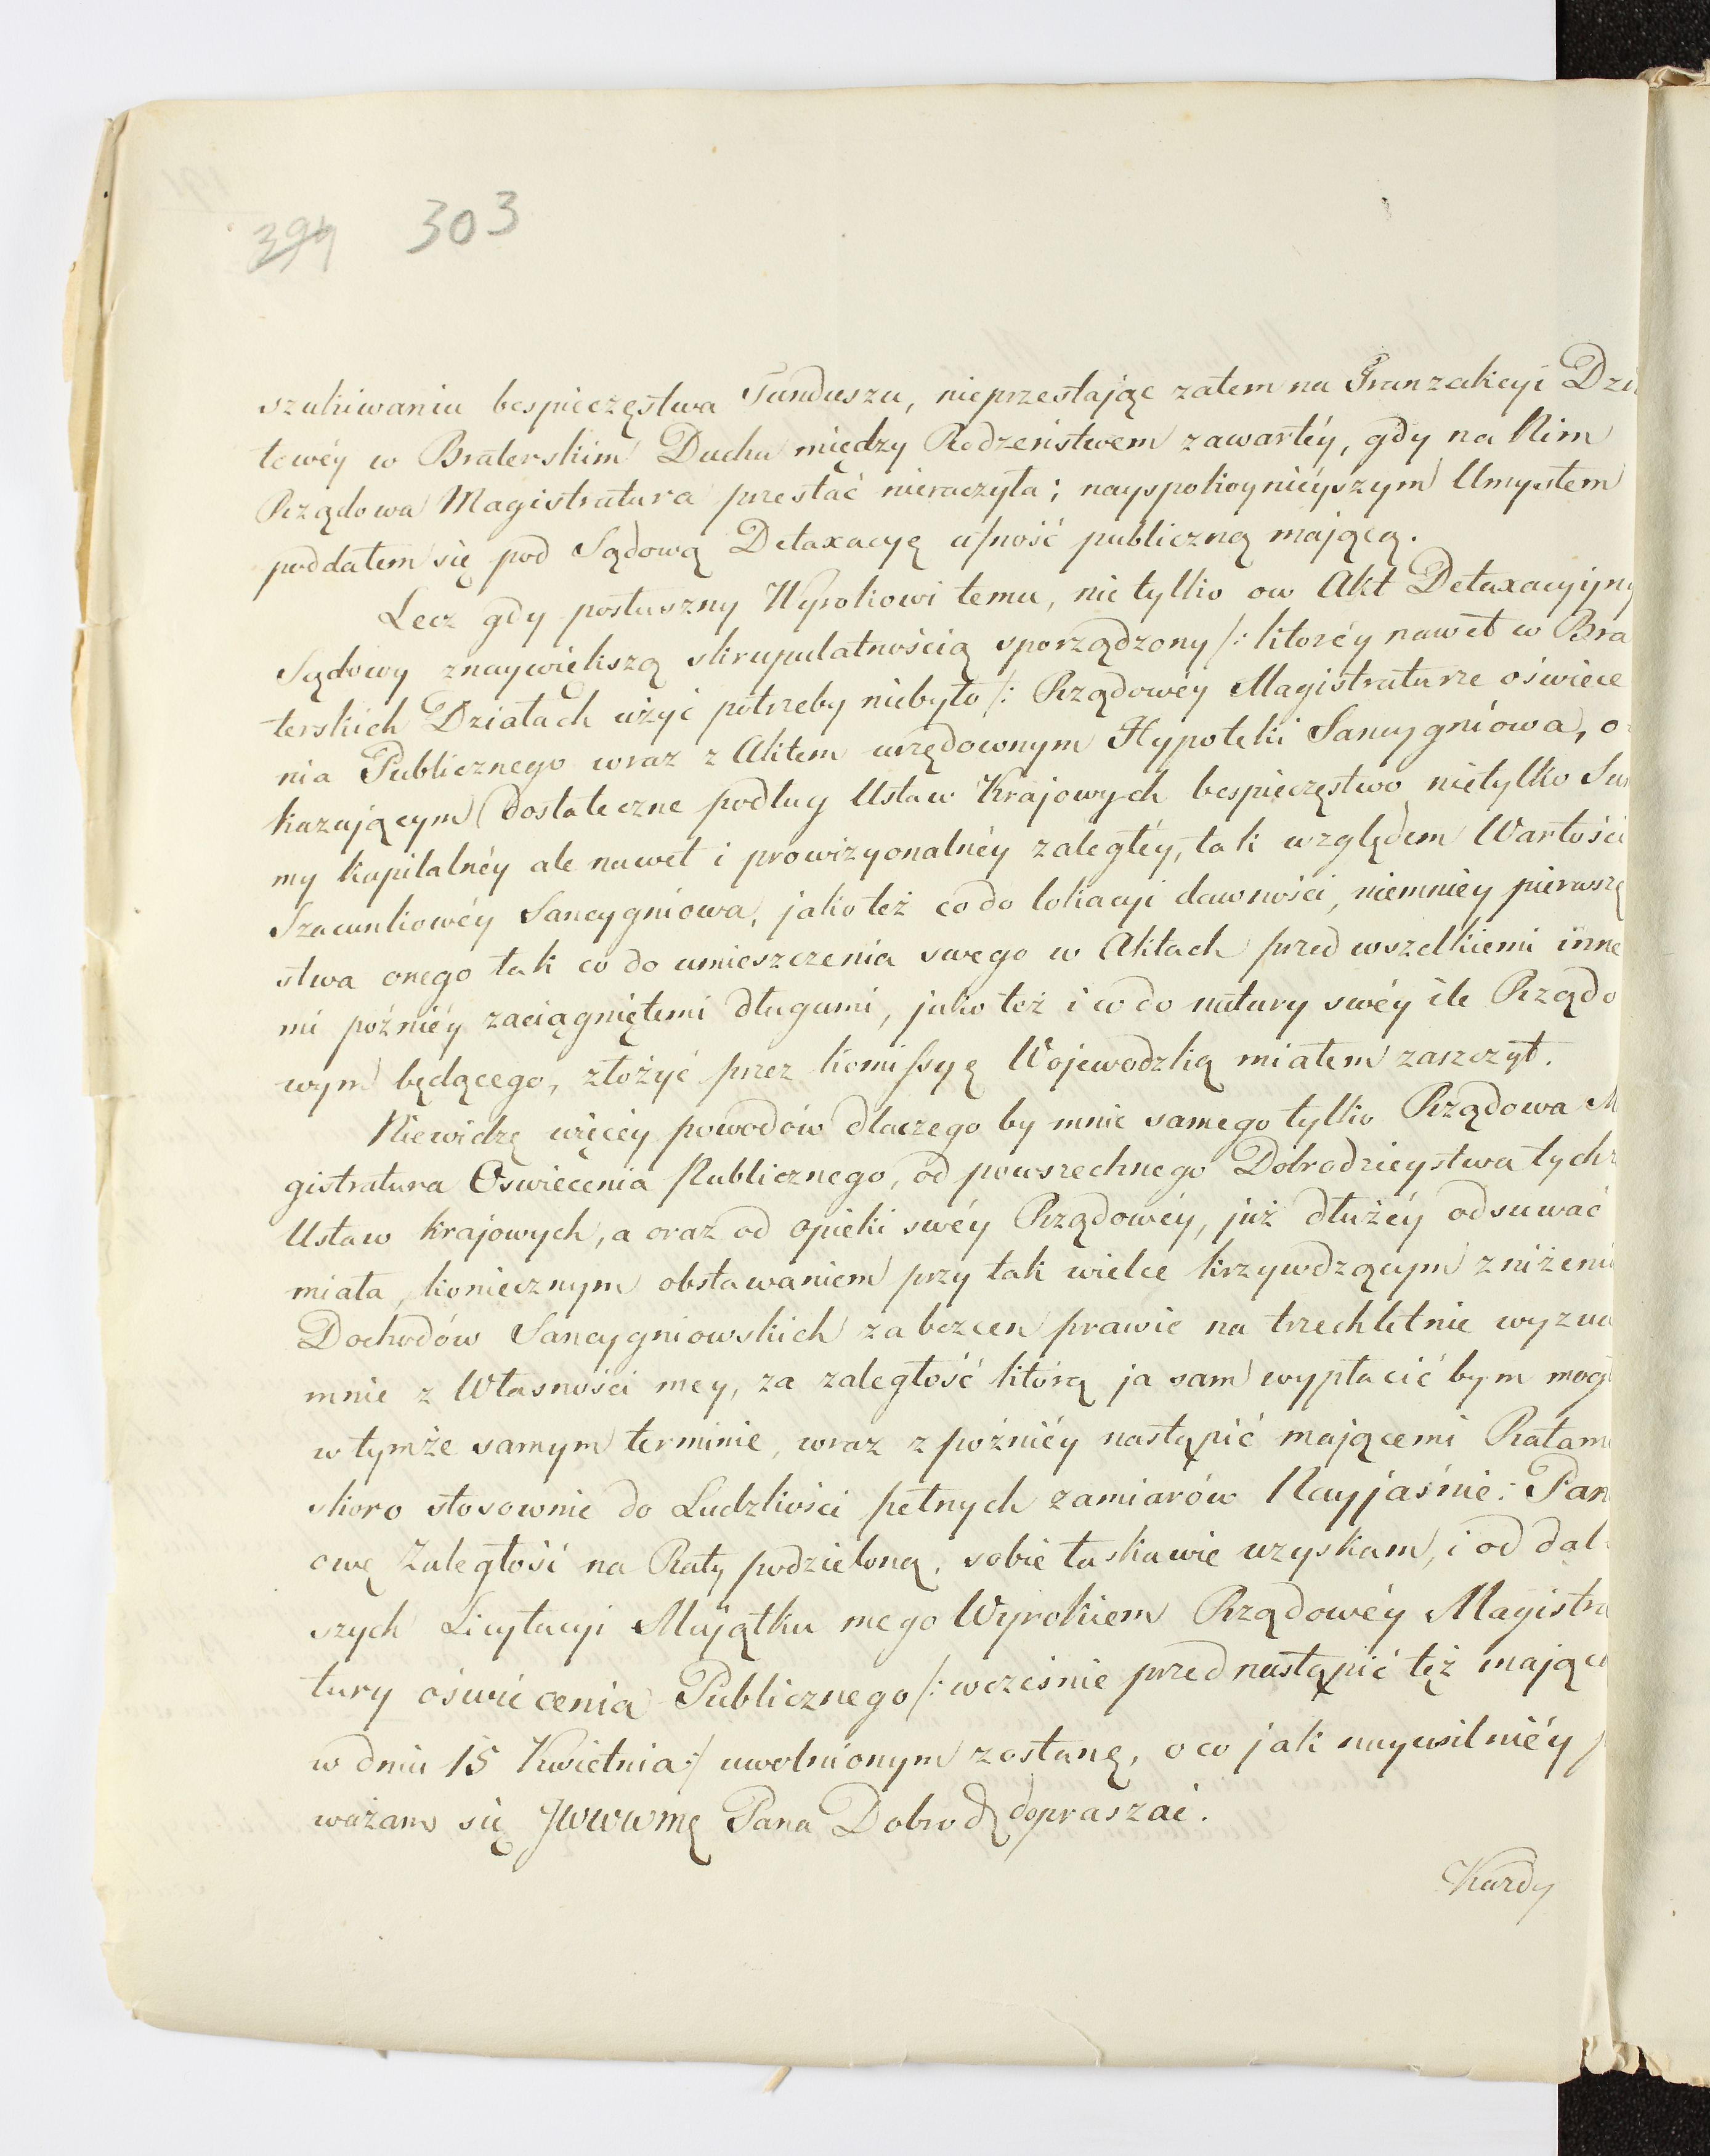 394 303
szukiwaniu bespieczęstwa Funduszu, nieprzestając zatem na Tranzakcyi Dzia
łowéy w Braterskim Duchu między Rodzeństwem zawartéy, gdy na Nim
Rządowa Magistratura przestać nieraczyła; nayspokoynieyszym Umysłem
poddałem się pod Sądową Detaxacyę ufność publiczną mającą.
Lecz gdy posłuszny Wyrokowi temu, nie tylko ow Akt Detaxacyjny
Sądowy znaywiększą skrupulatnością sporządzony /: ktoréy nawet w Bra
terskich Działach użyć potrzeby niebyło /: Rządowéy Magistraturze oświece
nia Publicznego wraz z Aktem urzędownym Hypoteki Sancygniowa, o
kazującym dostateczne podług Ustaw Krajowych bespieczęstwo nietylko Sum
my kapitalnéy ale nawet i prowizyonalnéy zaległéy, tak względem Wartości
Szacunkowéy Sancygniowa, jakoteż co do lokacyi dawności, niemniéy pierwszę
stwa onego tak co do umieszczenia swego w Aktach przed wszelkiemi inne
mi poźniéy zaciągniętemi długami, jako też i co do natury swéy ile Rządo
wym będącego, złożyć przez Komissyę Wojewodzką miałem zaszczyt.
Niewidzę więcéy powodów dlaczego by mnie samego tylko Rządowa M
gistratura Oświecenia Publicznego, od powszechnego Dobrodzieystwa tych
Ustaw krajowych, a oraz od opieki swéy Rządowéy, już dłużéy odsuwać
miała, koniecznym obstawaniem przy tak wielce krzywdzącym zniżeniu
Dochodów Sancygniowskich za bezcen prawie na trzechletnie wyzu
mnie z Własności mey, za zaległość którą ja sam wypłacić bym mogł
w tymże samym terminie, wraz z poźniéy nastąpić mającemi Ratami
skoro stosownie do Ludzkości pełnych zamiarów Nayjaśnie: Pan
owę Zaległość na Raty podzieloną, sobie łaskawie uzyskam, i od dal
szych Licytacyi Majątku mego Wyrokiem Rządowéy Magistra
tury oświecenia Publicznego /: wcześnie przed nastąpić też mającą
w dniu 15 Kwietnia:/ uwolnionym zostanę, o co jak nayusilniéy
ważam się JWWmę Pana Dobrodz dopraszać.
Kazdy